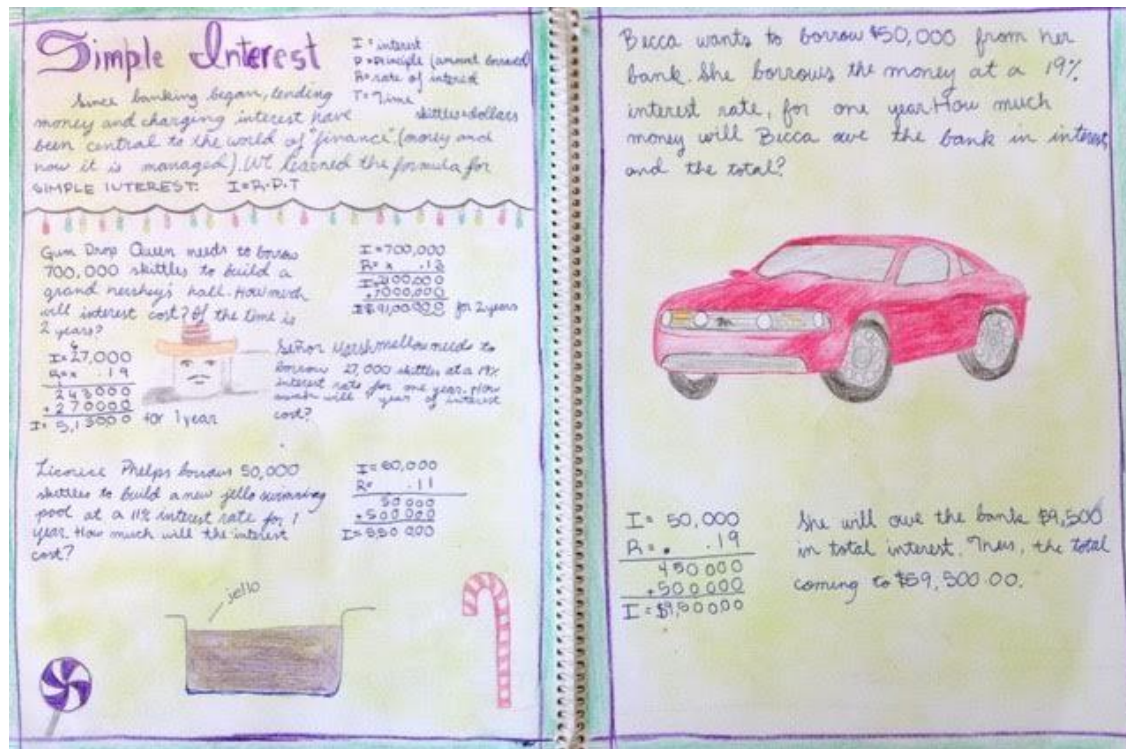 Simple Interest
I = interest
P = Principle (amount borrowed)
R = rate of interest
T = Time
skittles = dollars
Since banking began, lending
money and charging interest have
been central to the world of "finance" (money and
how it is managed). We learned the formula for
SIMPLE INTEREST: I = R · P · T
Gum Drop Queen needs to borrow
700,000 skittles to build a
grand hershey's hall. How much
will interest cost? If the time is
2 years?
I = 700,000
R = x .13
2100,000
+7000,000
for 2 years
I = 27,000
R = x .19
243000
+270000
I = 5,130.00 for 1 year
Señor Marshmellow needs to
borrow 27,000 skittles at a 19%
interest rate for one year. How
much will 1 year of interest
cost?
Licorice Phelps borrows 50,000
skittles to build a new jello swimming
pool at a 11% interest rate for 1
year. How much will the interest
cost?
I = 50,000
R = .11
50 000
+500 000
I = 550 000
jello
Becca wants to borrow $50,000 from her
bank. She borrows the money at a 19%
interest rate, for one year. How much
money will Becca owe the bank in interest,
and the total?
I = 50,000
R = .19
450 000
+500000
I = $9,500.00
She will owe the bank $9,500
in total interest. Thus, the total
coming to $59,500.00.